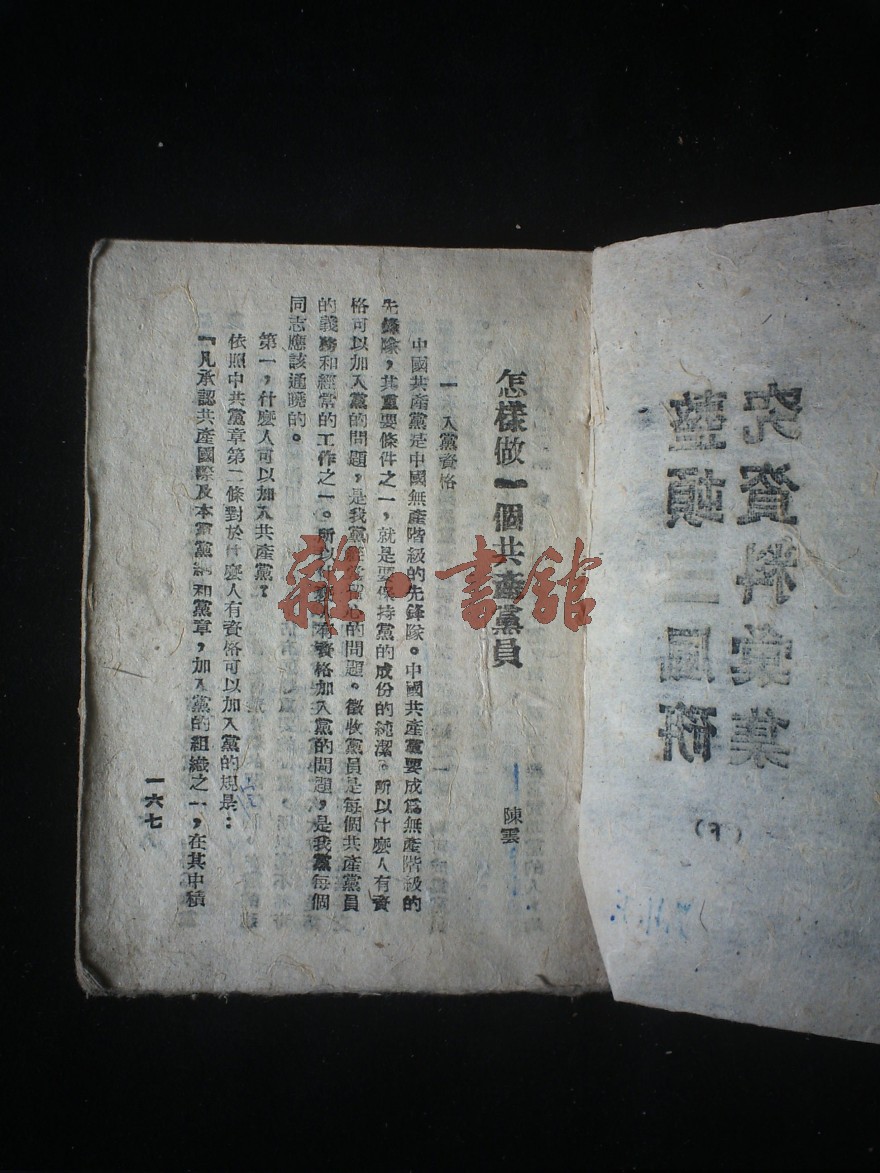 整頓三風研
究資料彙集
（下）
怎樣做一個共產黨員
陳雲
一　入黨資格
中國共產黨是中國無產階級的先鋒隊。中國共產黨要成爲無產階級的
先鋒隊，其重要條件之一，就是要保持黨的成份的純潔。所以什麽人有資
格可以加入黨的問題，是我黨心的問題。徵收黨員是每個共產黨員
的義務和經常的工作之一。所以什麽人有資格加入黨的問題，是我黨每個
同志應該通曉的。
第一，什麽人可以加入共產黨？
依照中共黨章第二條對於什麽人有資格可以加入黨的規是：
「凡承認共產國際及本黨黨綱和黨章，加入黨的組織之一，在其中積
一六七
雜·書館